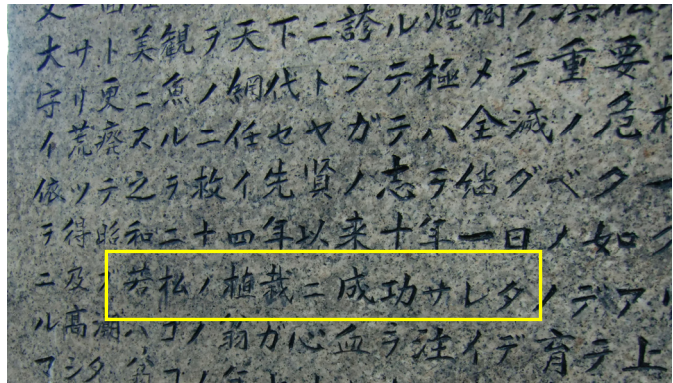 大サト美観ヲ天下ニ誇ル煙樹ケ浜松
守リ更ニ魚ノ網代トシテ極メテ重要
イ荒廃スルニ任セヤガテハ全滅ノ危
依ツテ之ヲ救イ先賢ノ志ヲ継グベク一
ヲ得昭和二十四年以来十年一日ノ如ク
ニ及 若松ノ植栽ニ成功サレタノデアリ
ル高潮ハコノ翁ガ心血ヲ注イデ育テ上